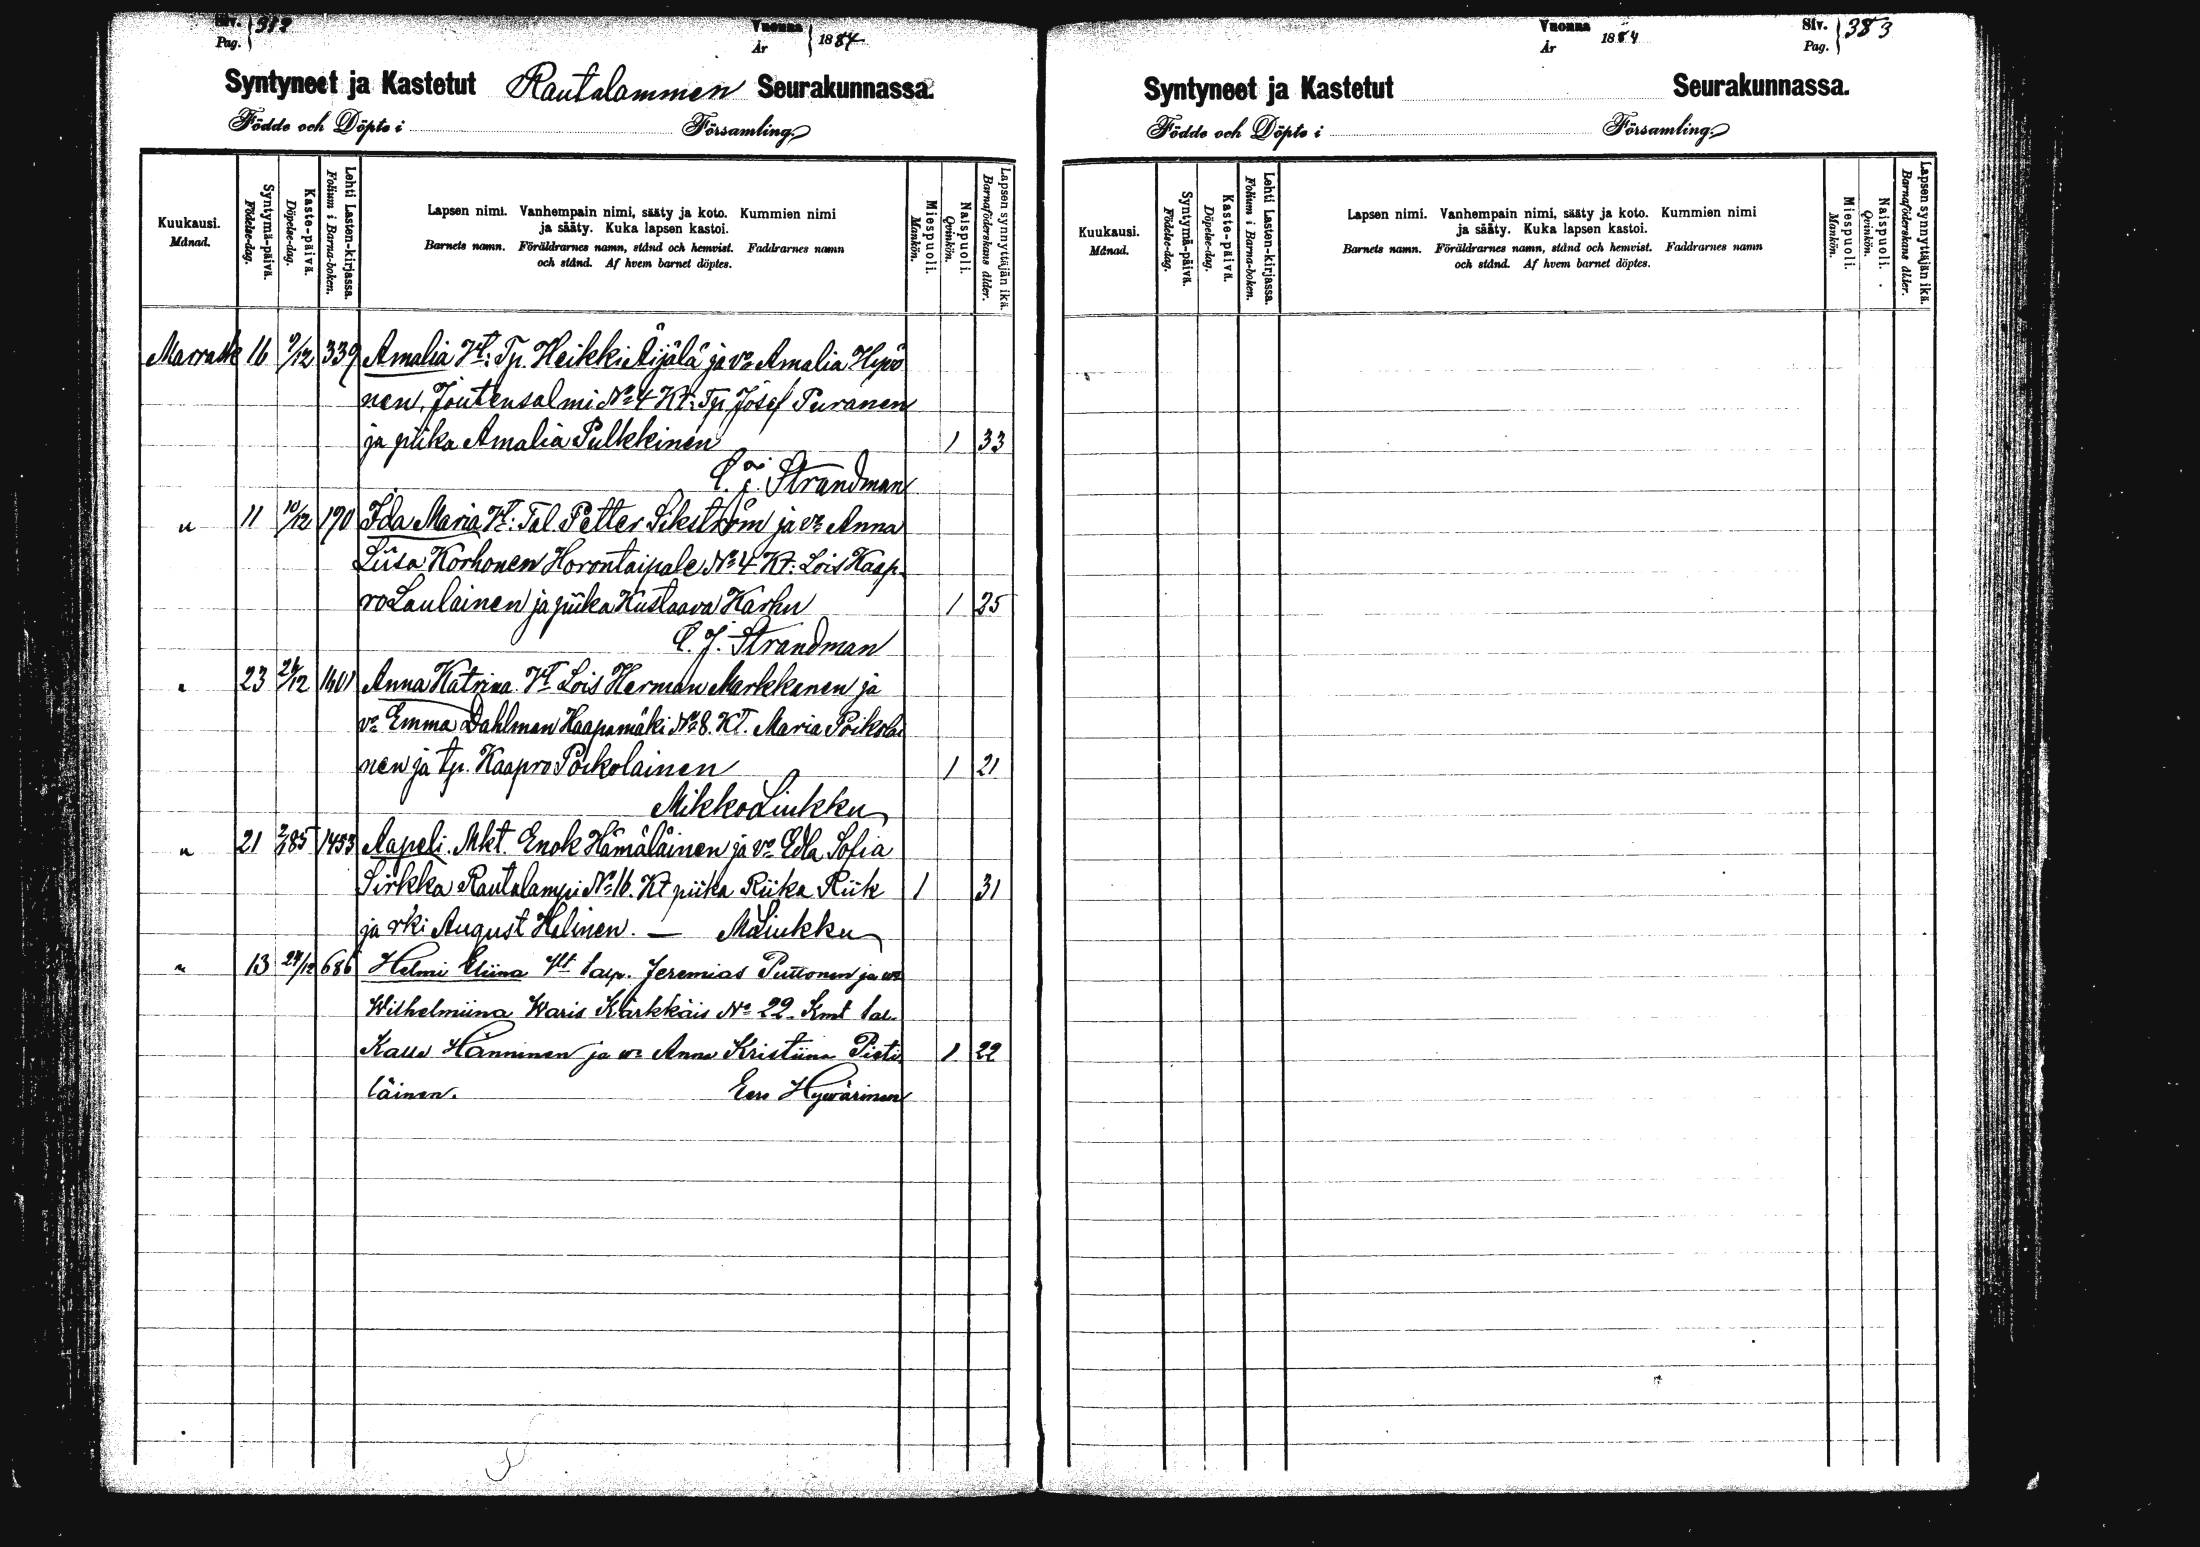 Siv. Pag. 382
Vuonna År 1884
Syntyneet ja Kastetut Rautalammen Seurakunnassa.
Födde och Döpte i Församling.
Kuukausi. Månad.
Syntymä-päivä. Födelse-dag.
Kaste-päivä. Döpelse-dag.
Lehti Lasten-kirjassa. Folium i Barna-boken.
Lapsen nimi. Vanhempain nimi, sääty ja koto. Kummien nimi
ja sääty. Kuka lapsen kastoi.
Barnets namn. Föräldrarnes namn, stånd och hemvist. Faddrarnes namn
och stånd. Af hvem barnet döptes.
Miespuoli. Mankön.
Naispuoli. Qvinkön.
Lapsen synnyttäjän ikä. Barnaföderskans ålder.
Marrask 16 9/12 339 Amalia Vt: Tp. Heikki Äijälä ja vo Amalia Hypö
nen, Joutensalmi No 4 Kt: Tp Josef Puranen
ja piika Amalia Pulkkinen 1 33
C. J. Strandman
" 11 10/12 170 Ida Maria Vt: Tal. Petter Sikström ja vo Anna
Liisa Korhonen Horontaipale No 4 Kt: Lois Kaap-
ro Laulainen ja piika Kustaava Karhu 1 25
C. J. Strandman
" 23 26/12 1401 Anna Katrina Vt Lois Herman Markkanen ja
vo Emma Dahlman Haapamäki No 8. Kt. Maria Poikolai
nen ja tp. Kaapro Poikolainen 1 21
Mikko Liukku
" 21 85 1453 Aapeli. Mkt. Enok Hämäläinen ja vo Edla Sofia
Sirkka Rautalampi No 16. Kt piika Riika Riik 1 31
ja rki August Halinen. — M Liukku
" 13 27/12 686 Helmi Eliina Vlt talp. Jeremias Puttonen ja wo
Wilhelmiina Waris Kärkkäis No 22. Kmt tal.
Kalle Hänninen ja wo Anna Kristiina Pieti 1 22
läinen. Eero Hywärinen
Vuonna År 1884
Siv. Pag. 383
Syntyneet ja Kastetut Seurakunnassa.
Födde och Döpte i Församling.
Kuukausi. Månad.
Syntymä-päivä. Födelse-dag.
Kaste-päivä. Döpelse-dag.
Lehti Lasten-kirjassa. Folium i Barna-boken.
Lapsen nimi. Vanhempain nimi, sääty ja koto. Kummien nimi
ja sääty. Kuka lapsen kastoi.
Barnets namn. Föräldrarnes namn, stånd och hemvist. Faddrarnes namn
och stånd. Af hvem barnet döptes.
Miespuoli. Mankön.
Naispuoli. Qvinkön.
Lapsen synnyttäjän ikä. Barnaföderskans ålder.